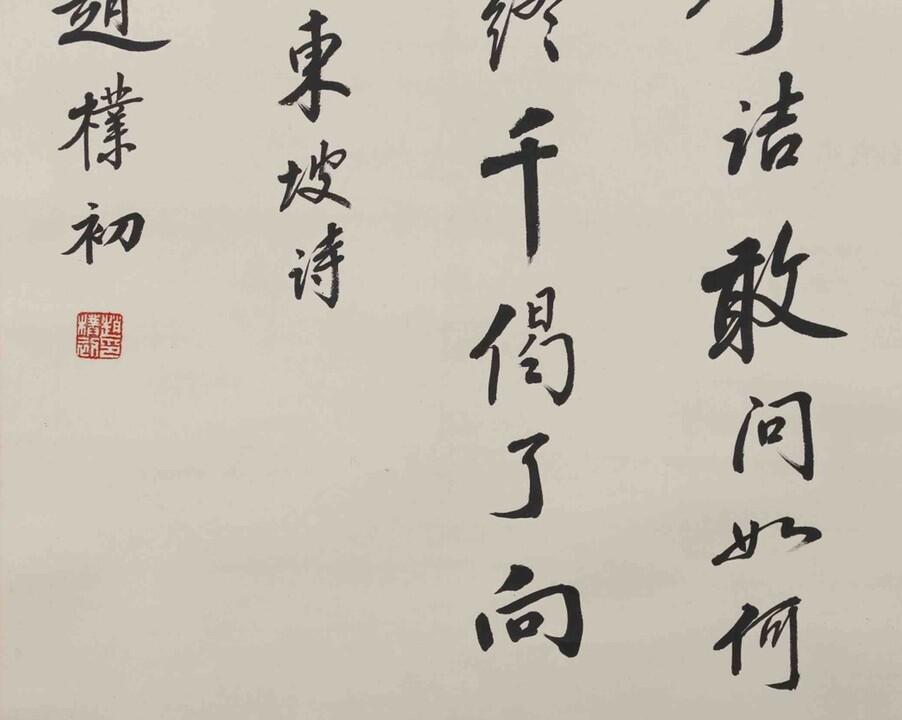 诘敢问如何
终千偈了向
東坡诗
趙樸初
趙印樸初